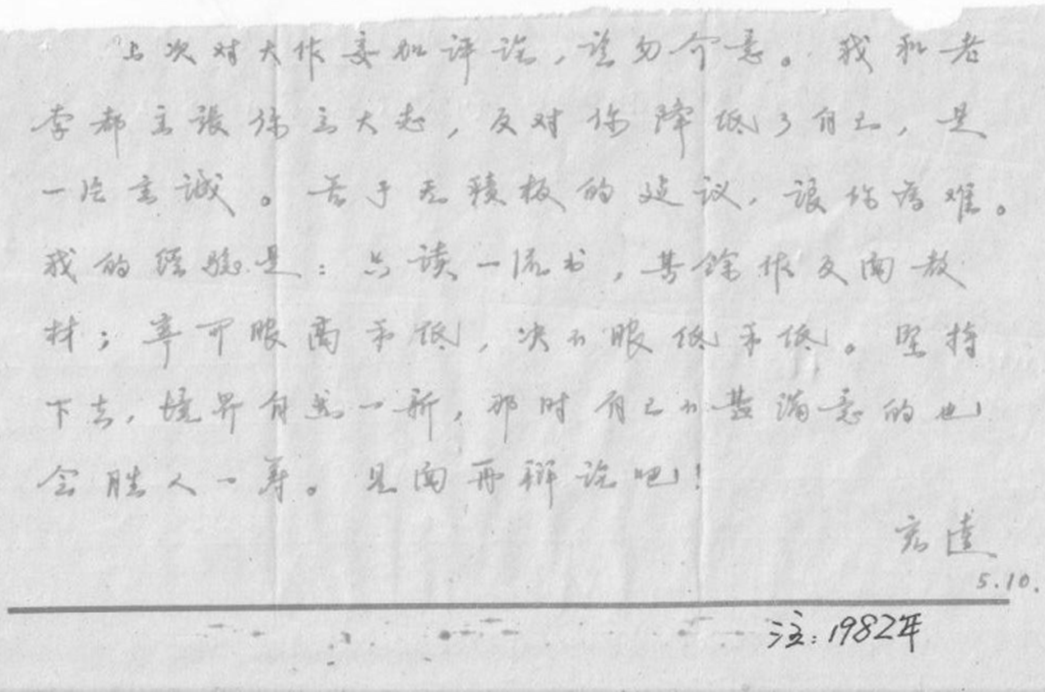 上次对大作妄加评论，请勿介意。我和老
李都主张你立大志，反对你降低了自己，是
一片至诚。苦于无积极的建议，让你为难。
我的经验是：只读一流书，其余作反面教
材；宁可眼高手低，决不眼低手低。坚持
下去，境界自然一新，那时自己不甚满意的也
会胜人一筹。见面再辩论吧！
5.10.
注：1982年